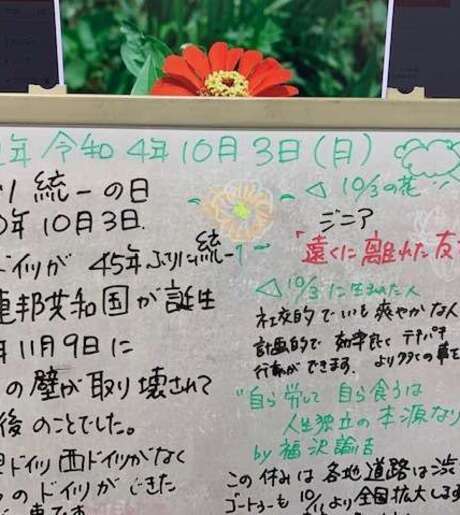 年 令和4年10月3日(月)
ツ統一の日
0年10月3日.
ドイツが 45年ぶりに統一
連邦共和国が誕生
年11月9日に
の壁が取り壊されて
後のことでした。
ドイツ 西ドイツがなく
つのドイツができた
◁ 10/3の花
ジニア
「遠くに離れた友
◁ 10/3に生まれた人
社交的でいつも爽やかな人
計画的で 効率良く テキパキ
行動ができます. より多くの事を
"自ら労して 自ら食うは
人生独立の本源なり
by 福沢諭吉
この休みは 各地道路は渋
ゴートゥーも 10/11より全国拡大します